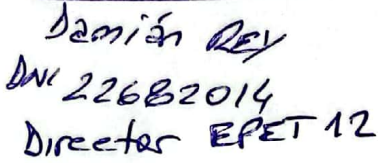 Damián REY
DNI 22682014
Director EPET 12